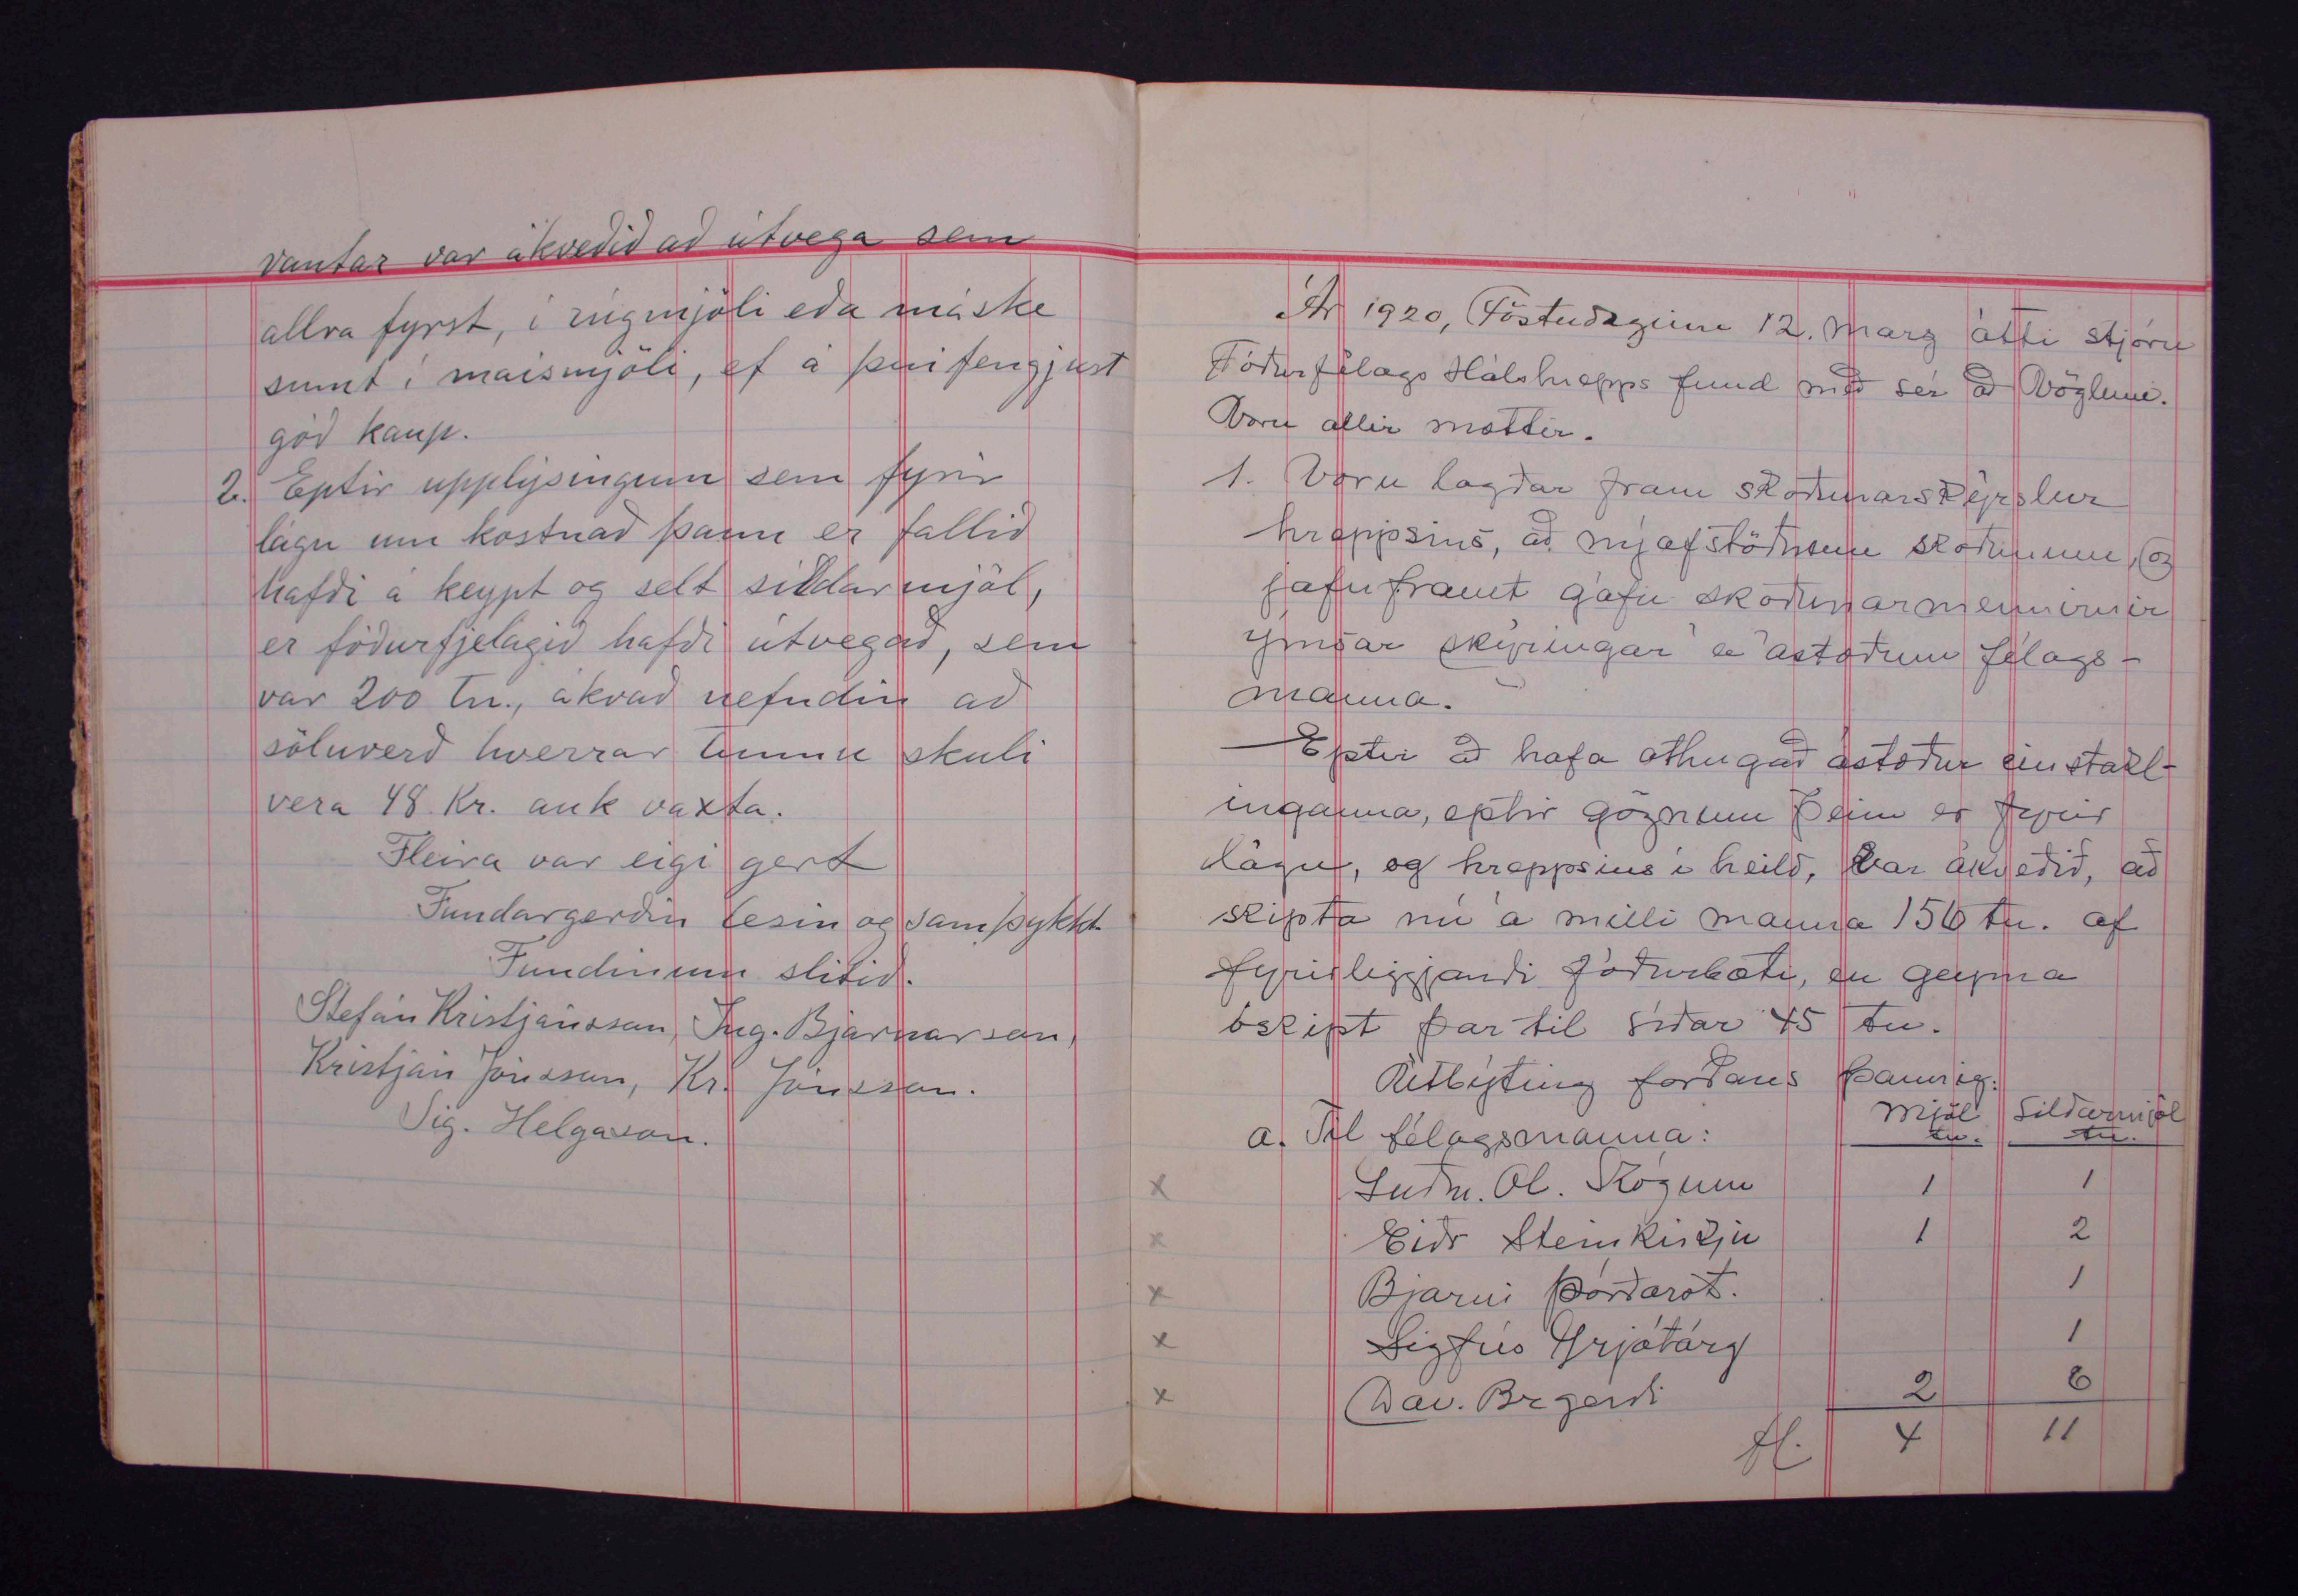 vantar var ákveðið að útvega sem
allra fyrst, í rúgmjöli eða máske
sumt í maismjöli, ef á því fengjust
góð kaup.
2. Eptir upplýsingum sem fyrir
lágu um kostnað þann er fallið
hafði á keypt og selt síldarmjöl,
er fóðurfjelagið hafði útvegað, sem
var 200 tn., ákvað nefndin að
söluverð hverrar tunnu skuli
vera 48 Kr. auk vaxta.
Fleira var eigi gert
Fundargerðin lesin og samþykkt
Fundinum slitið.
Stefán Kristjánsson, Ing. Bjarnarson,
Kristján Jónsson, Kr. Jónsson.
Sig. Helgason.
Ár 1920, Föstudaginn 12. marz átti stjórn
Fóðurfélags Hálshrepps fund með sér að Vöglum.
Voru allir mættir.
1. Voru lagðar fram skoðunarskýrslur
hreppsins, að nýafstöðnum skoðunum, og
jafnframt gáfu skoðunarmennirnir
ýmsar skýringar á ástæðum félags-
manna.
Eptir að hafa athugað ástæður einstakl-
inganna, eptir gögnum þeim er fyrir
lágu, og hreppsins í heild, var ákveðið, að
skipta nú á milli manna 156 tn. af
fyrirliggjandi fóðurbæti, en geyma
óskipt þar til síðar 45 tn.
Útbýting forðans þannig:
mjöl síldarmjöl
a. Til félagsmanna: tn. tn.
x Guðm. Ól. Skógum 1 1
x Eiðr Steinkirkju 1 2
x Bjarni Þórðarst. 1
x Sigfús Grjótárg 1
x Dav. Br gerði 2 6
fl. 4 11